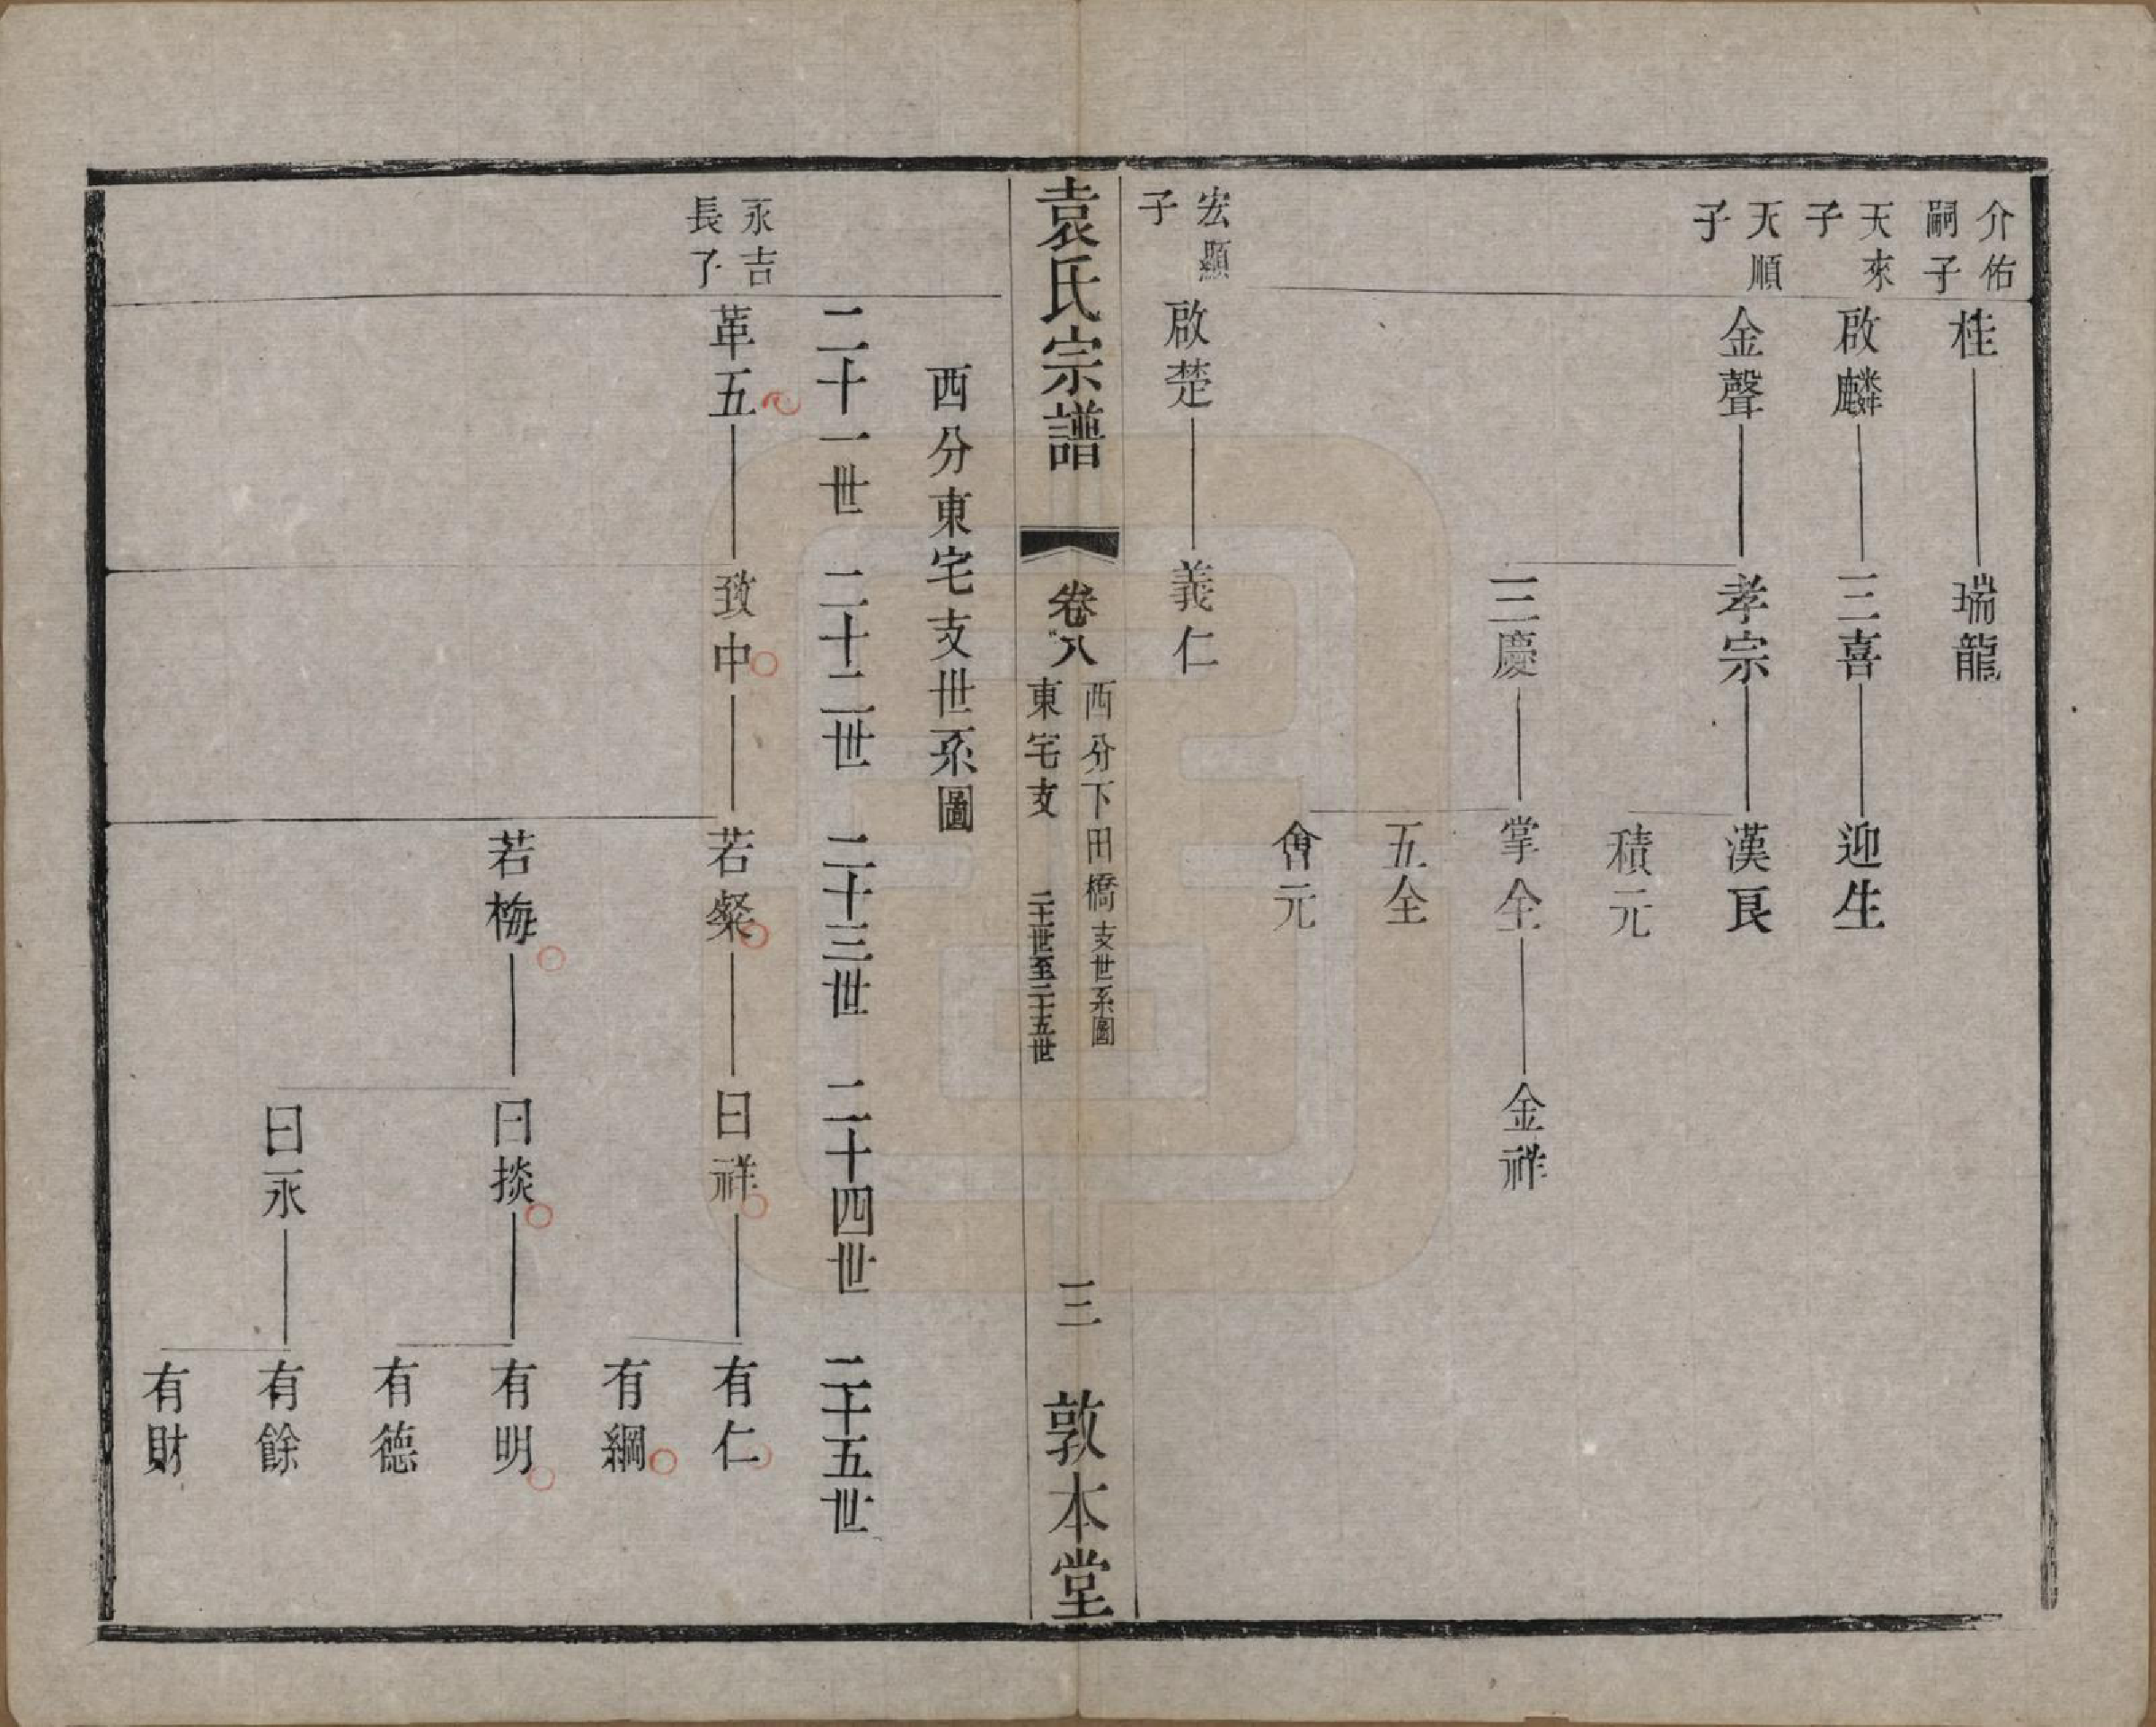 介佑
嗣子
桂
瑞龍
天來
子
啟麟
三喜
迎生
天順
子
金聲
孝宗
漢良
積元
三慶
掌全
金祥
五全
會元
宏顯
子
啟楚
義仁
袁氏宗譜
卷八
西分下田橋支世系圖
東宅支
二十一世至二十五世
三
敦本堂
西分東宅支世系圖
二十一世
二十二世
二十三世
二十四世
二十五世
永吉
長子
革五
致中
若粲
日祥
有仁
有綱
若梅
日掞
有明
有德
日永
有餘
有財